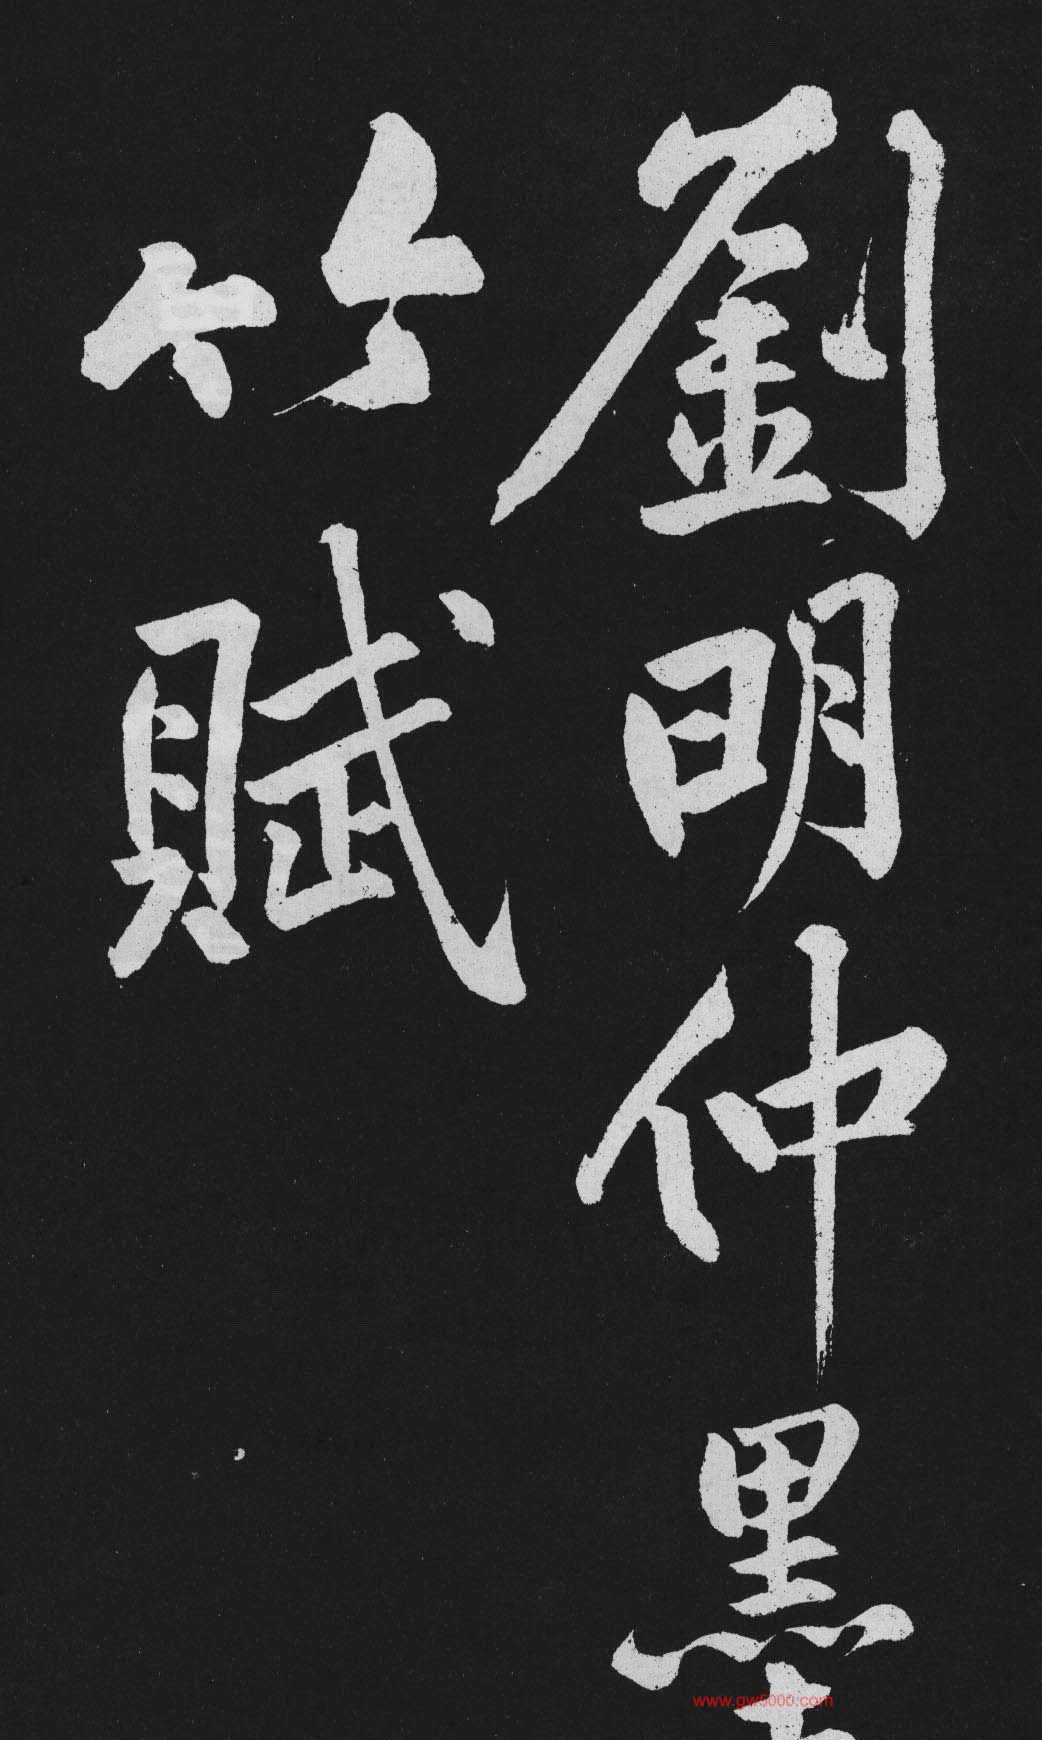 劉明仲墨
竹賦
www.gw5000.com